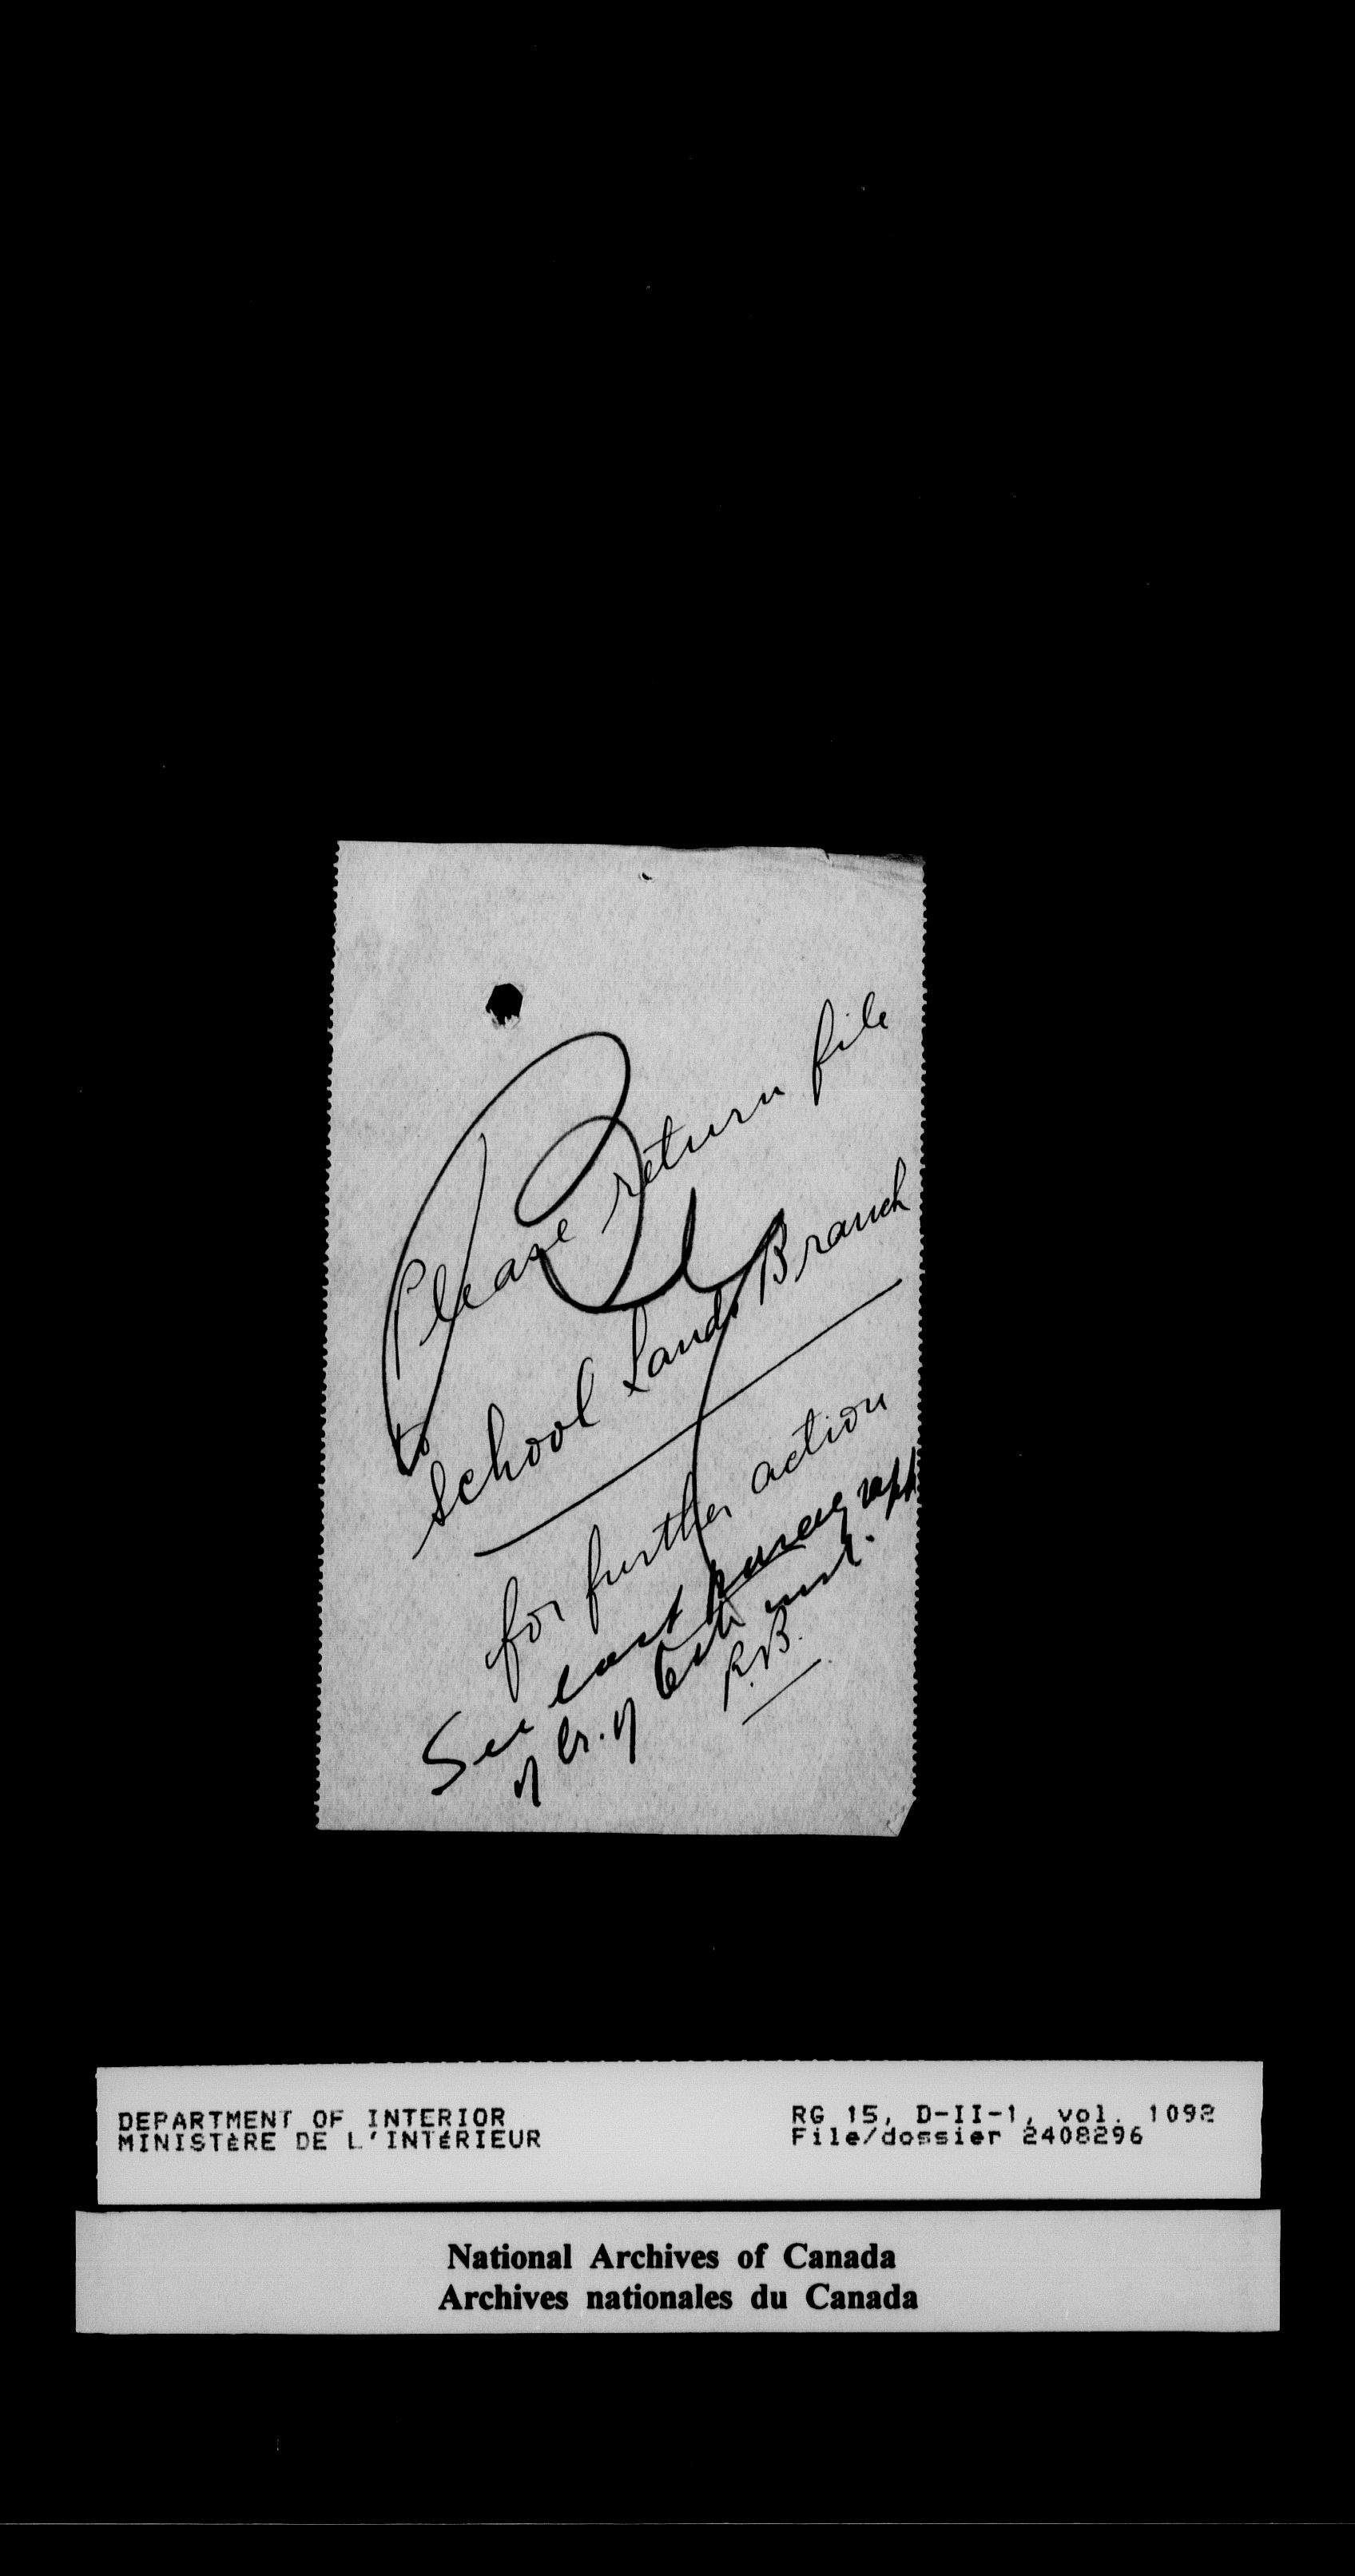 Please return file
to
School Lands Branch
for further action
See last paragraph
of Lr. of inst.
R.B.
DEPARTMENT OF INTERIOR
MINISTÈRE DE L'INTÉRIEUR
RG 15, D-II-1, vol. 1092
File/dossier 2408296
National Archives of Canada
Archives nationales du Canada